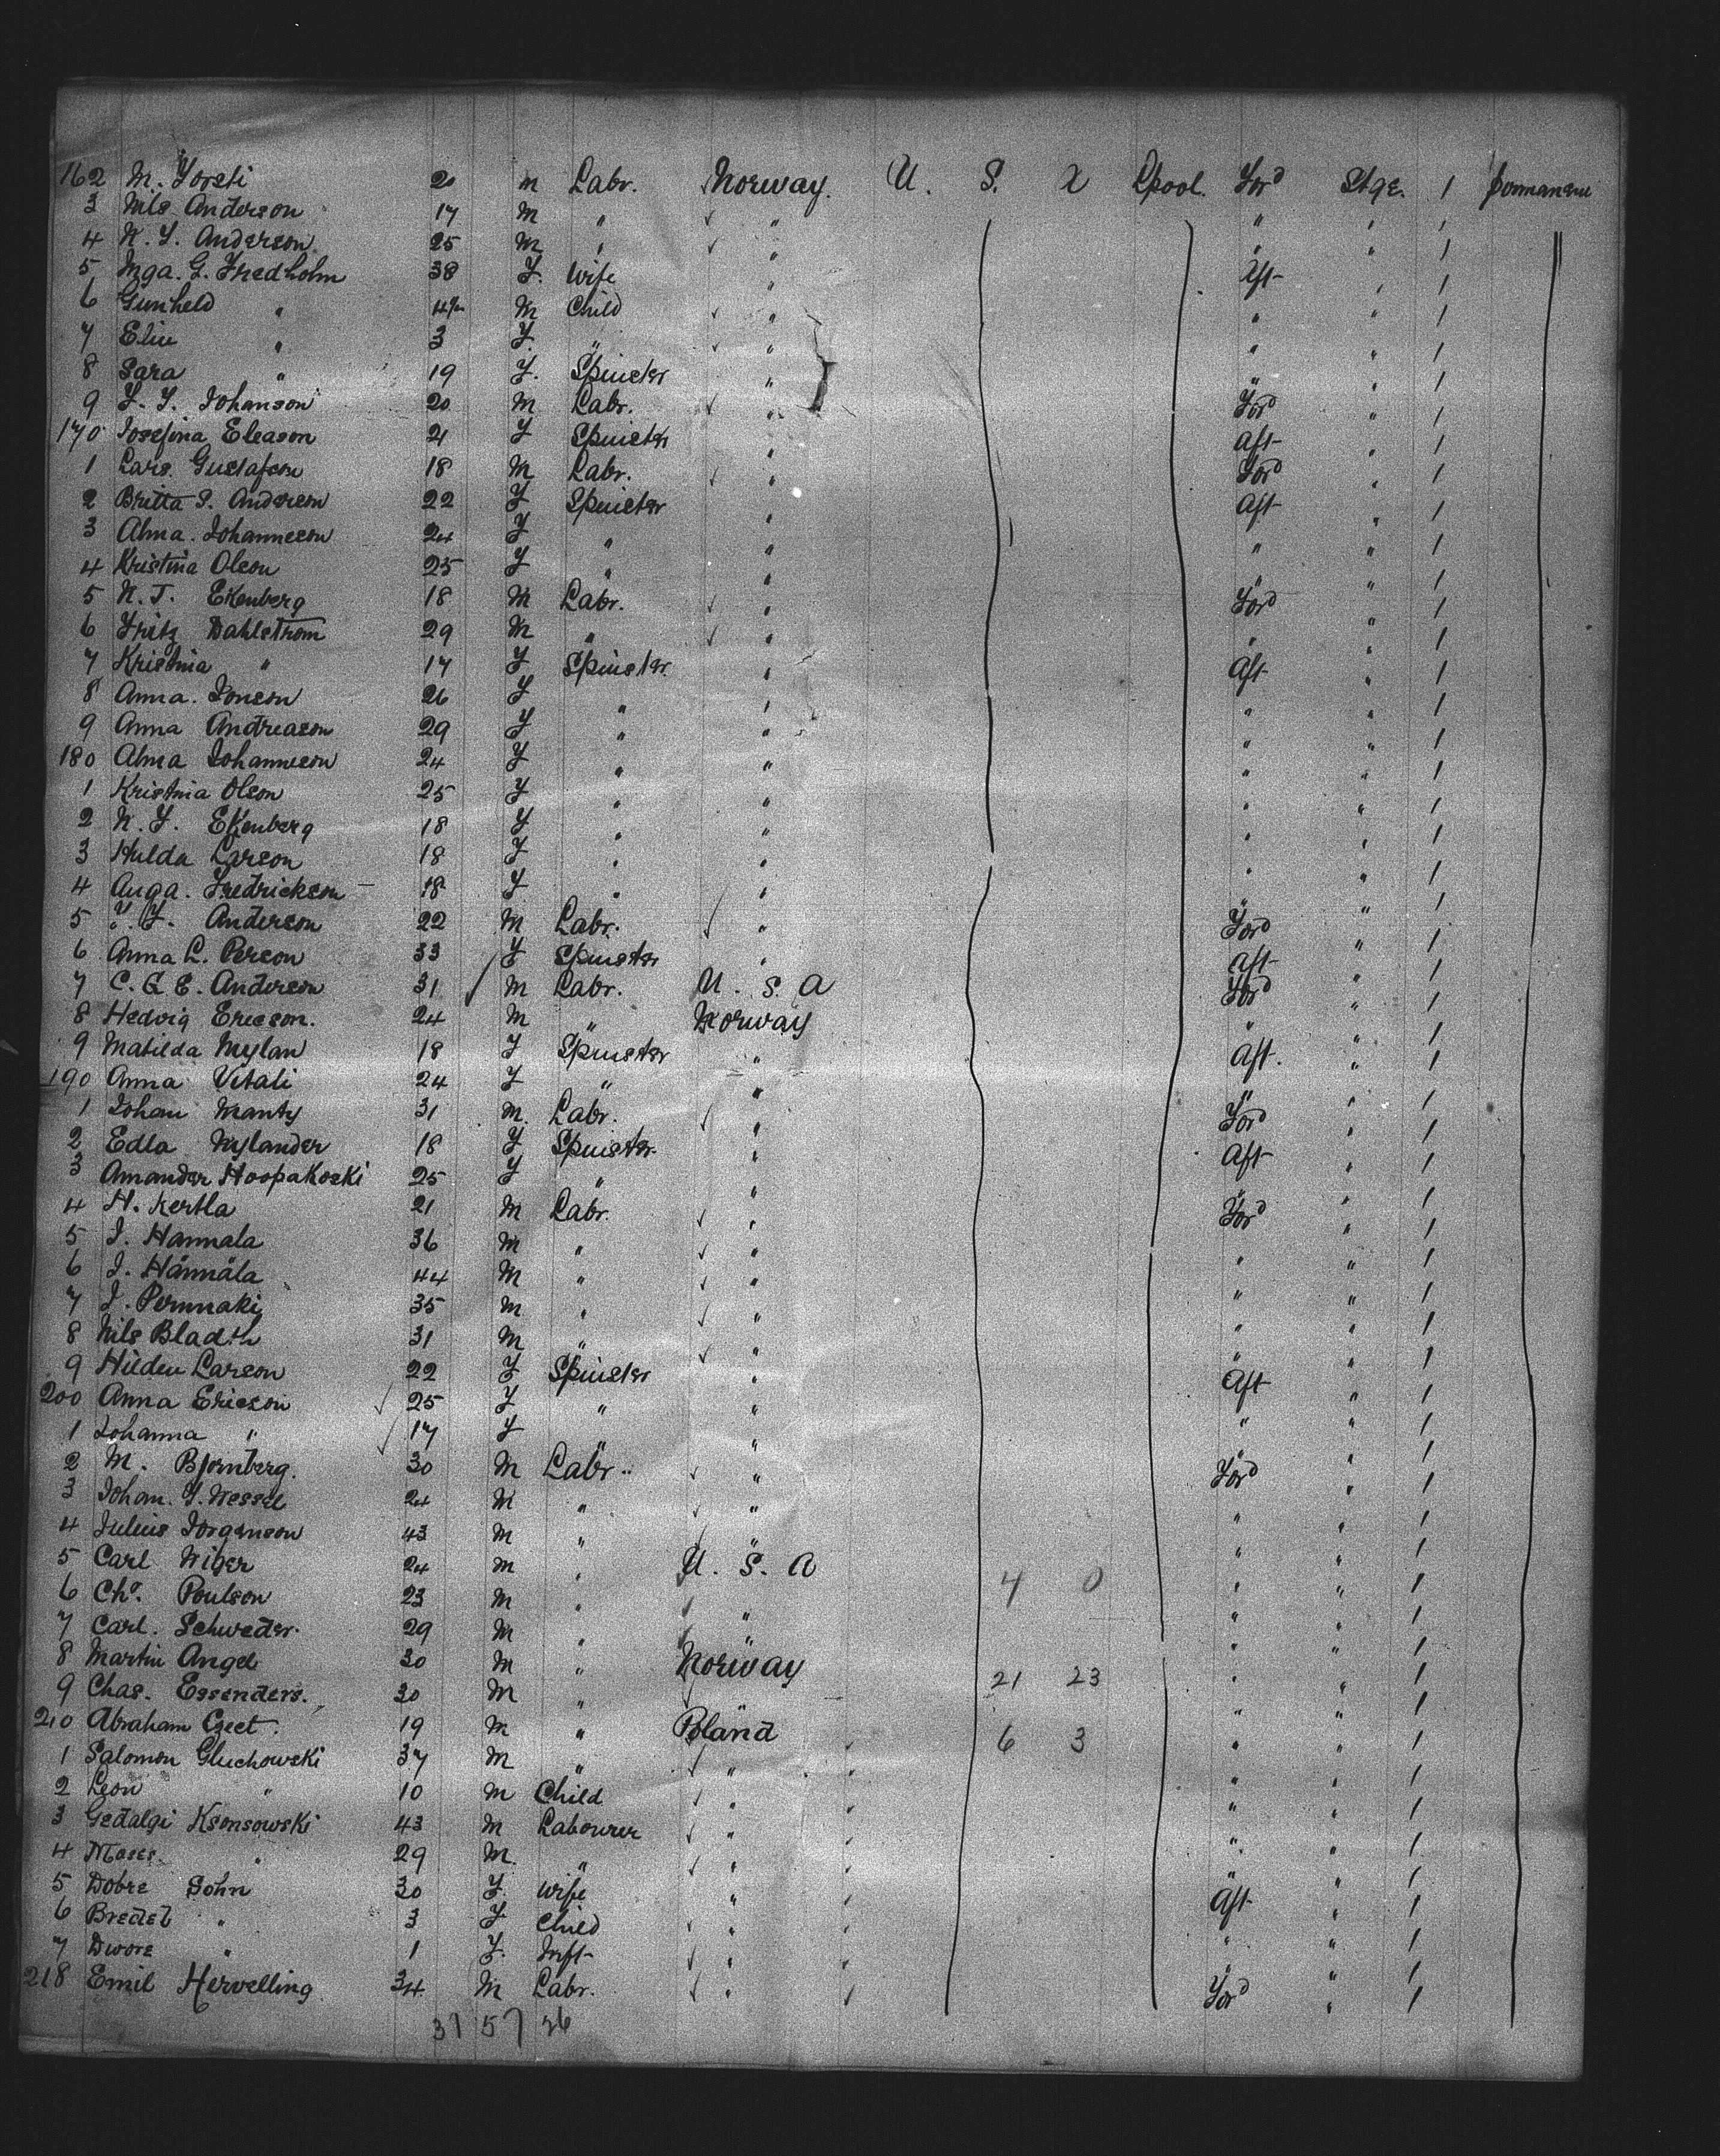 162 M. Forsti 20 m Labr. Norway. U. S. X Lpool. Ford Stge. 1 permanent
3 Nils Anderson 17 m " " " " 1
4 N. F. Anderson 25 m " " " " 1
5 Inga. G. Fredholm 38 F. Wife " Aft " 1
6 Gunheld " 4 m Child " " " 1
7 Elin " 3 F. " " " " 1
8 Sara " 19 F. Spinster " " " 1
9 F. F. Johanson 20 m Labr. " Ford " 1
170 Josefina Eleason 21 F Spinster " Aft " 1
1 Lars. Gustafson 18 m Labr. " Ford " 1
2 Britta S. Anderson 22 F Spinster " Aft " 1
3 Alma. Johanneson 24 F " " " " 1
4 Kristina Olson 25 F " " " " 1
5 N. F. Ekenberg 18 m Labr. " Ford " 1
6 Fritz Dahlstrom 29 m " " " " 1
7 Kristina " 17 F Spinster. " Aft " 1
8 Anna. Jonson 26 F " " " " 1
9 Anna Andreason 29 F " " " " 1
180 Alma Johanneson 24 F " " " " 1
1 Kristina Olson 25 F " " " " 1
2 N. F. Ekenberg 18 F " " " " 1
3 Hulda Larson 18 F " " " " 1
4 Auga. Fredrickson 18 F " " " " 1
5 F. Anderson 22 m Labr. " Ford " 1
6 Anna L. Person 33 F Spinster " Aft " 1
7 C. G. E. Anderson 31 m Labr. U. S. A Ford " 1
8 Hedvig Ericson. 24 m " Norway " " 1
9 Matilda Nylan 18 F Spinster " Aft. " 1
190 Anna Vitali 24 F " " " " 1
1 Johan Manty 31 m. Labr. " Ford " 1
2 Edla Nylander 18 F Spinster. " Aft " 1
3 Amander Hoopakoski 25 F " " " " 1
4 H. Kertla 21 m Labr. " Ford " 1
5 J. Hannala 36 m " " " " 1
6 J. Hännäla 44 m " " " " 1
7 J. Pernnaki 35 m " " " " 1
8 Nils Bladth 31 m " " " " 1
9 Hilden Larson 22 F Spinster " Aft " 1
200 Anna Ericson 25 F " " " " 1
1 Johanna " 17 F " " " " 1
2 M. Bjornberg. 30 m Labr. " Ford " 1
3 Johan. F. Wessel 24 m " " " " 1
4 Julius Jorgenson 43 m " " " " 1
5 Carl 24 m " U. S. A " " 1
6 Chs. Poulson 23 m " " 4 0 " " 1
7 Carl. Schweder. 29 m " " " " 1
8 Martin Angel 30 m " Norway " " 1
9 Chas. Essenders. 30 m " " 21 23 " " 1
210 Abraham Czect. 19 m " Poland 6 3 " " 1
1 Salomon Gluchowski 37 m " " " " 1
2 Leon " 10 m Child " " " 1
3 Gedalgi Ksonsowski 43 m Labourer " " " 1
4 Moses " 29 m. " " " " 1
5 Dobre Sohn 30 F. Wife " Aft " 1
6 Bredet " 3 F Child " " " 1
7 Dwore " 1 F. Inft " " " 1
218 Emil Hervelling 34 m Labr. " Ford " 1
31 57 26